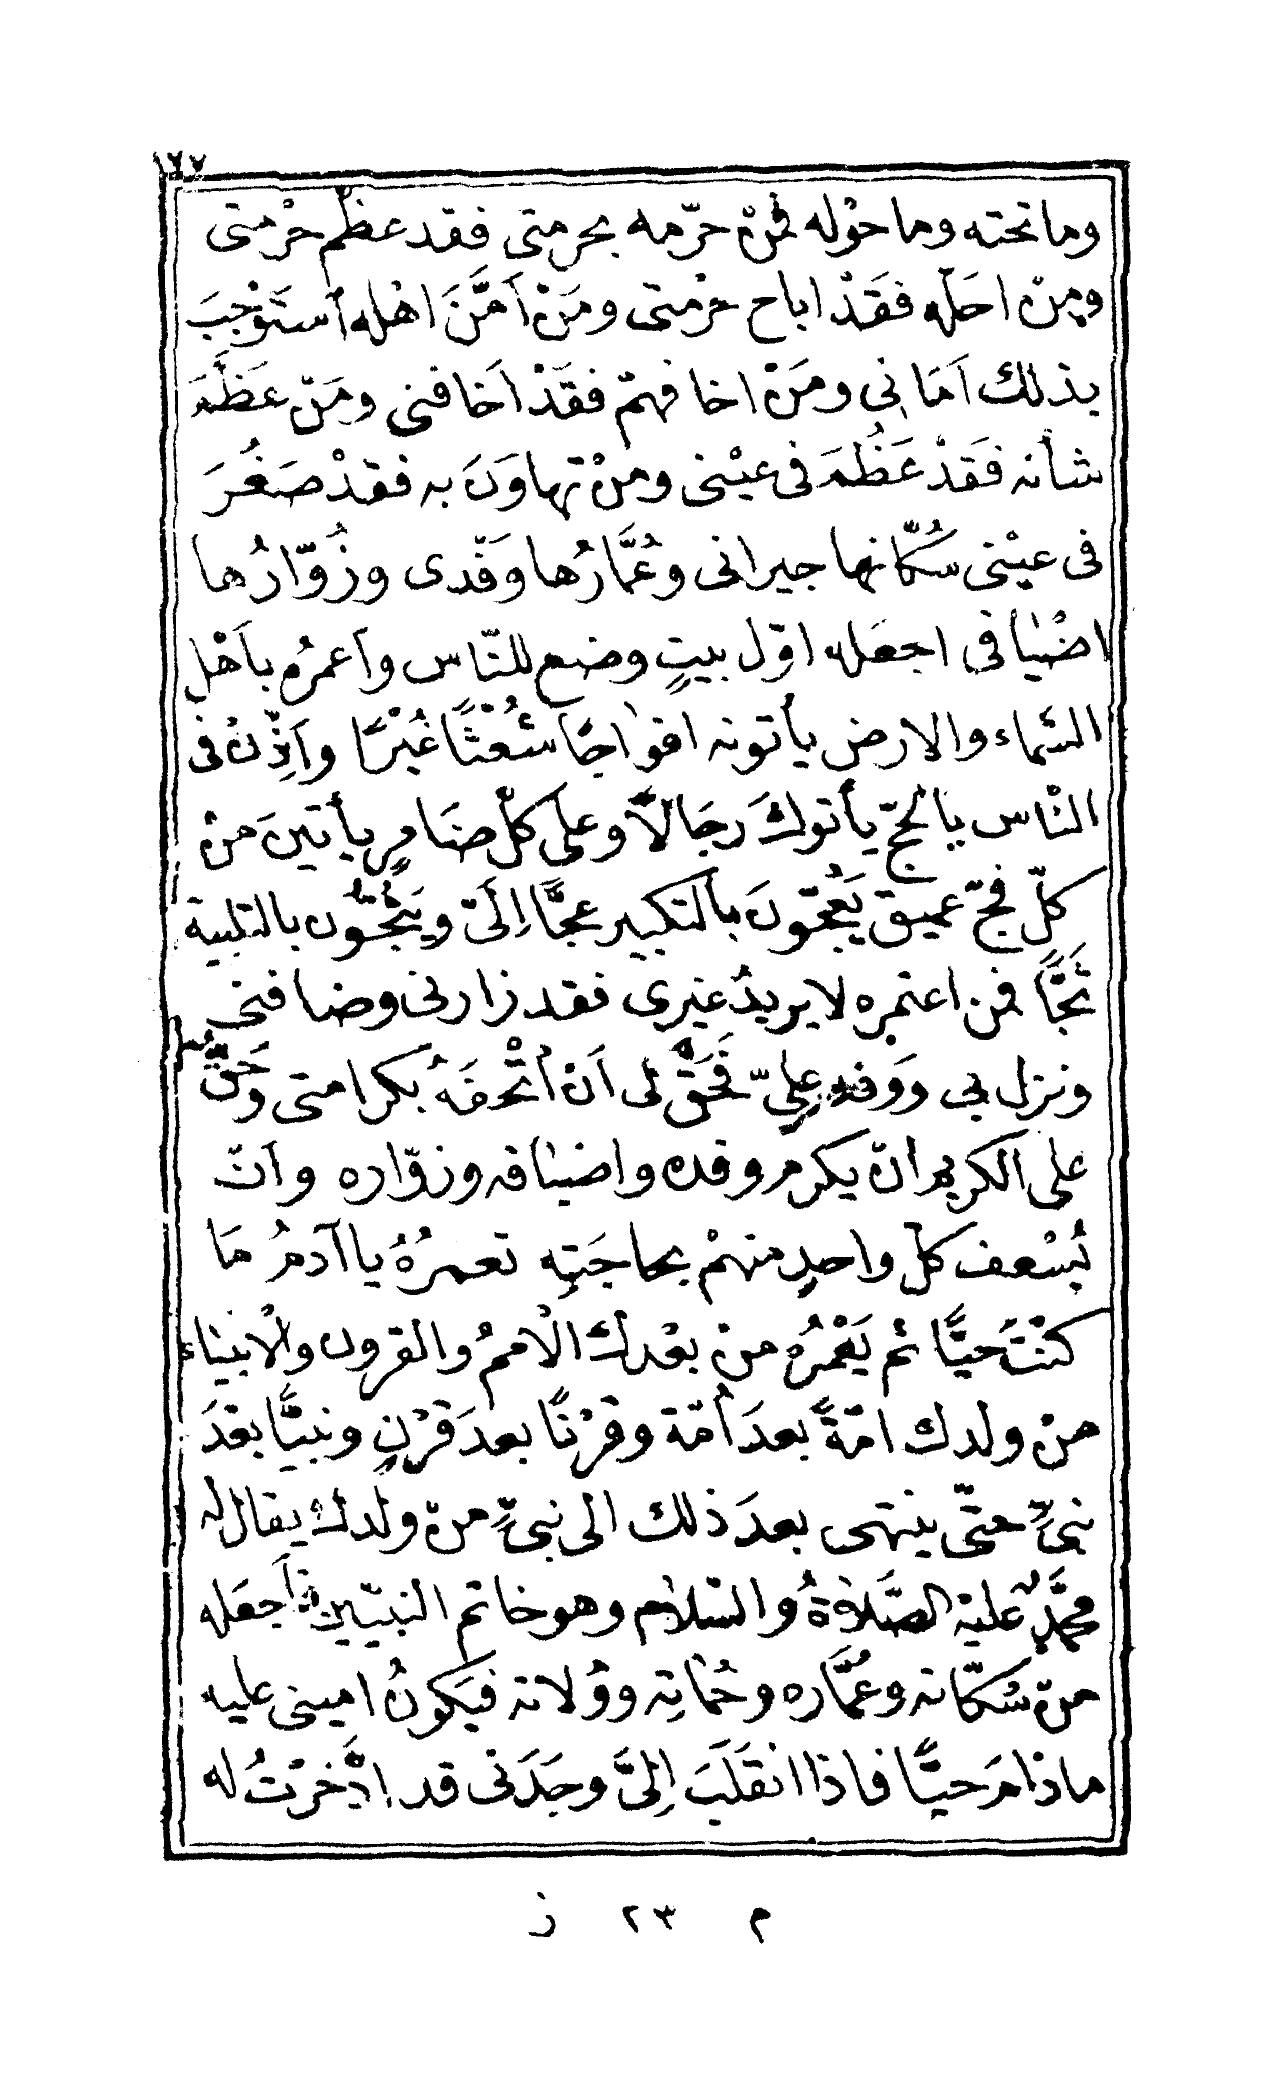 ١٧٧
وما تحته وما حوْله فمنْ حرّمه بحرمتى فقد عظّم حرْمتى
ومنْ احلّه فقَدْ اباح حرْمتى ومَنْ أمَّنَ اهْله أستَوْجبَ
بذلك اَمَانى ومَنْ اخافهمْ فقَدْ اَخافنى ومَنْ عَظَّمَ
شأنه فقَدْ عَظُمَ فى عيْنى ومنْ تهاوَنَ به فقدْ صَغُرَ
فى عيْنى سُكّانها جيرانى وعُمَّارُها وَفْدى وزُوّارُها
اضْيافى اجعَله اوّل بيتٍ وضع للنّاس وأعمرُه بأهْل
السّماء والارض يأتونه افواجًا شُعْثًا غُبْرًا وأذّن فى
النّاس بالحجّ يأتوكَ رجَالاً وعلى كلّ ضَامرٍ يأتينَ منْ
كلّ فجّ عميق يَعُجّونَ بالتكبير عجًّا اِلَىّ ويَثُجُّون بالتلبية
ثَجًّا فمن اعتمره لا يريدُ غيرى فقد زارنى وضافنى
ونزل بى ووفد علىّ فَحَقّ لى اَنْ أُتْحفَهُ بكرامتى وَحَقٌّ
على الكريم أنْ يكرم وفده واضيافه وزوّاره واَنْ
يُسْعف كلّ واحدٍ منهمْ بحاجَتِه تعمرُهُ يا آدمُ مَا
كنْتَ حيًّا ثم يَعْمُرُه منْ بعْدك الْاممُ والقرون والْانبياء
منْ ولدك امّةً بعدَ أمّة وقرْنًا بعدَ قرْنٍ ونبيًّا بعْدَ
نبىٍّ حتّى ينتهى بعدَ ذلك الى نبىٍّ منْ ولدك يقال له
محمّدٌ عليْه الصَّلاةُ والسّلام وهو خاتم النبيّين فأجعَله
منْ سُكّانه وعُمَّاره وحُمَاتِه ووُلاته فيَكونُ امينى عليه
مادَامَ حيًّا فاذا انقلَبَ اِلىَّ وجَدَنى قد ادَّخرْتُ له
م ٢٣ ز